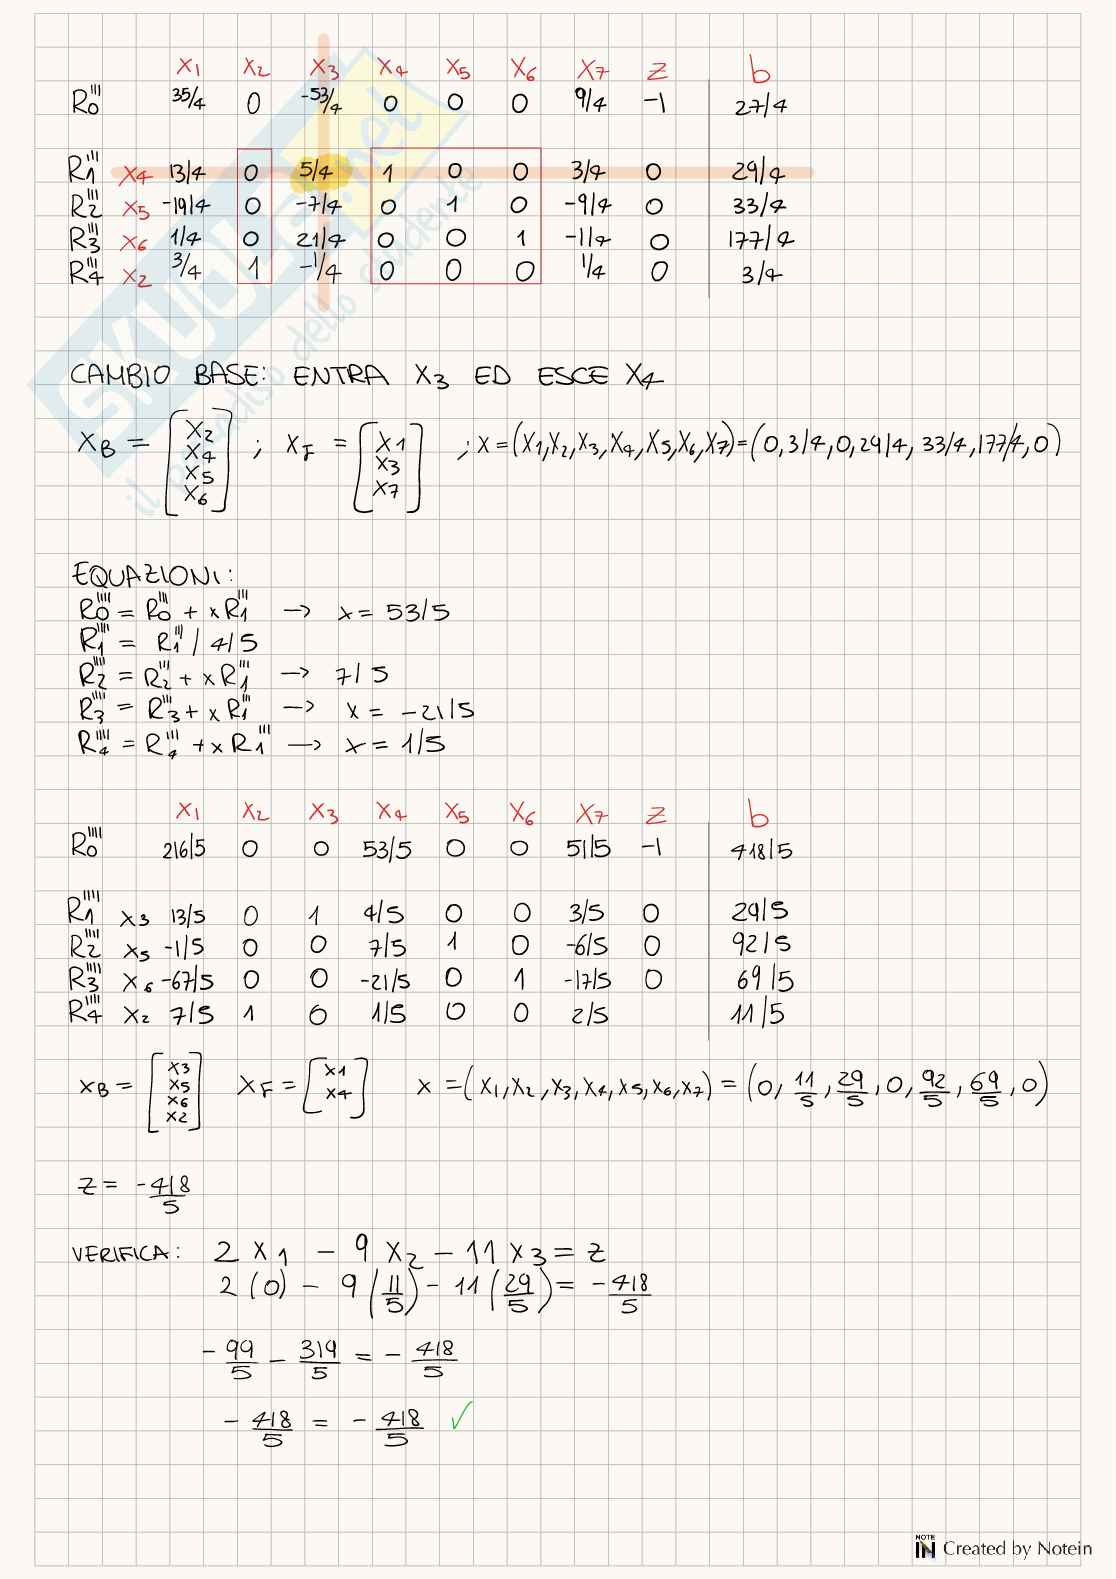 x1 x2 x3 x4 x5 x6 x7 z b
R0''' 35/4 0 -53/4 0 0 0 9/4 -1 27/4
R1''' x4 13/4 0 5/4 1 0 0 3/4 0 29/4
R2''' x5 -19/4 0 -7/4 0 1 0 -9/4 0 33/4
R3''' x6 1/4 0 21/4 0 0 1 -1/4 0 177/4
R4''' x2 3/4 1 -1/4 0 0 0 1/4 0 3/4
CAMBIO BASE: ENTRA x3 ED ESCE x4
xB = [x2 x4 x5 x6] ; xF = [x1 x3 x7] ; x = (x1,x2,x3,x4,x5,x6,x7) = (0,3/4,0,29/4,33/4,177/4,0)
EQUAZIONI:
R0'''' = R0''' + xR1''' → x = 53/5
R1'''' = R1''' / 4/5
R2'''' = R2''' + xR1''' → 7/5
R3'''' = R3''' + xR1''' → x = -21/5
R4'''' = R4''' + xR1''' → x = 1/5
x1 x2 x3 x4 x5 x6 x7 z b
R0'''' 216/5 0 0 53/5 0 0 51/5 -1 418/5
R1'''' x3 13/5 0 1 4/5 0 0 3/5 0 29/5
R2'''' x5 -1/5 0 0 7/5 1 0 -6/5 0 92/5
R3'''' x6 -67/5 0 0 -21/5 0 1 -17/5 0 69/5
R4'''' x2 7/5 1 0 1/5 0 0 2/5 11/5
xB = [x3 x5 x6 x2] xF = [x1 x4] x = (x1,x2,x3,x4,x5,x6,x7) = (0, 11/5, 29/5, 0, 92/5, 69/5, 0)
z = -418/5
VERIFICA: 2x1 - 9x2 - 11x3 = z
2(0) - 9(11/5) - 11(29/5) = -418/5
-99/5 - 319/5 = -418/5
-418/5 = -418/5 ✓
SKUOLA.net
il paradiso dello studente
NOTE IN Created by Notein